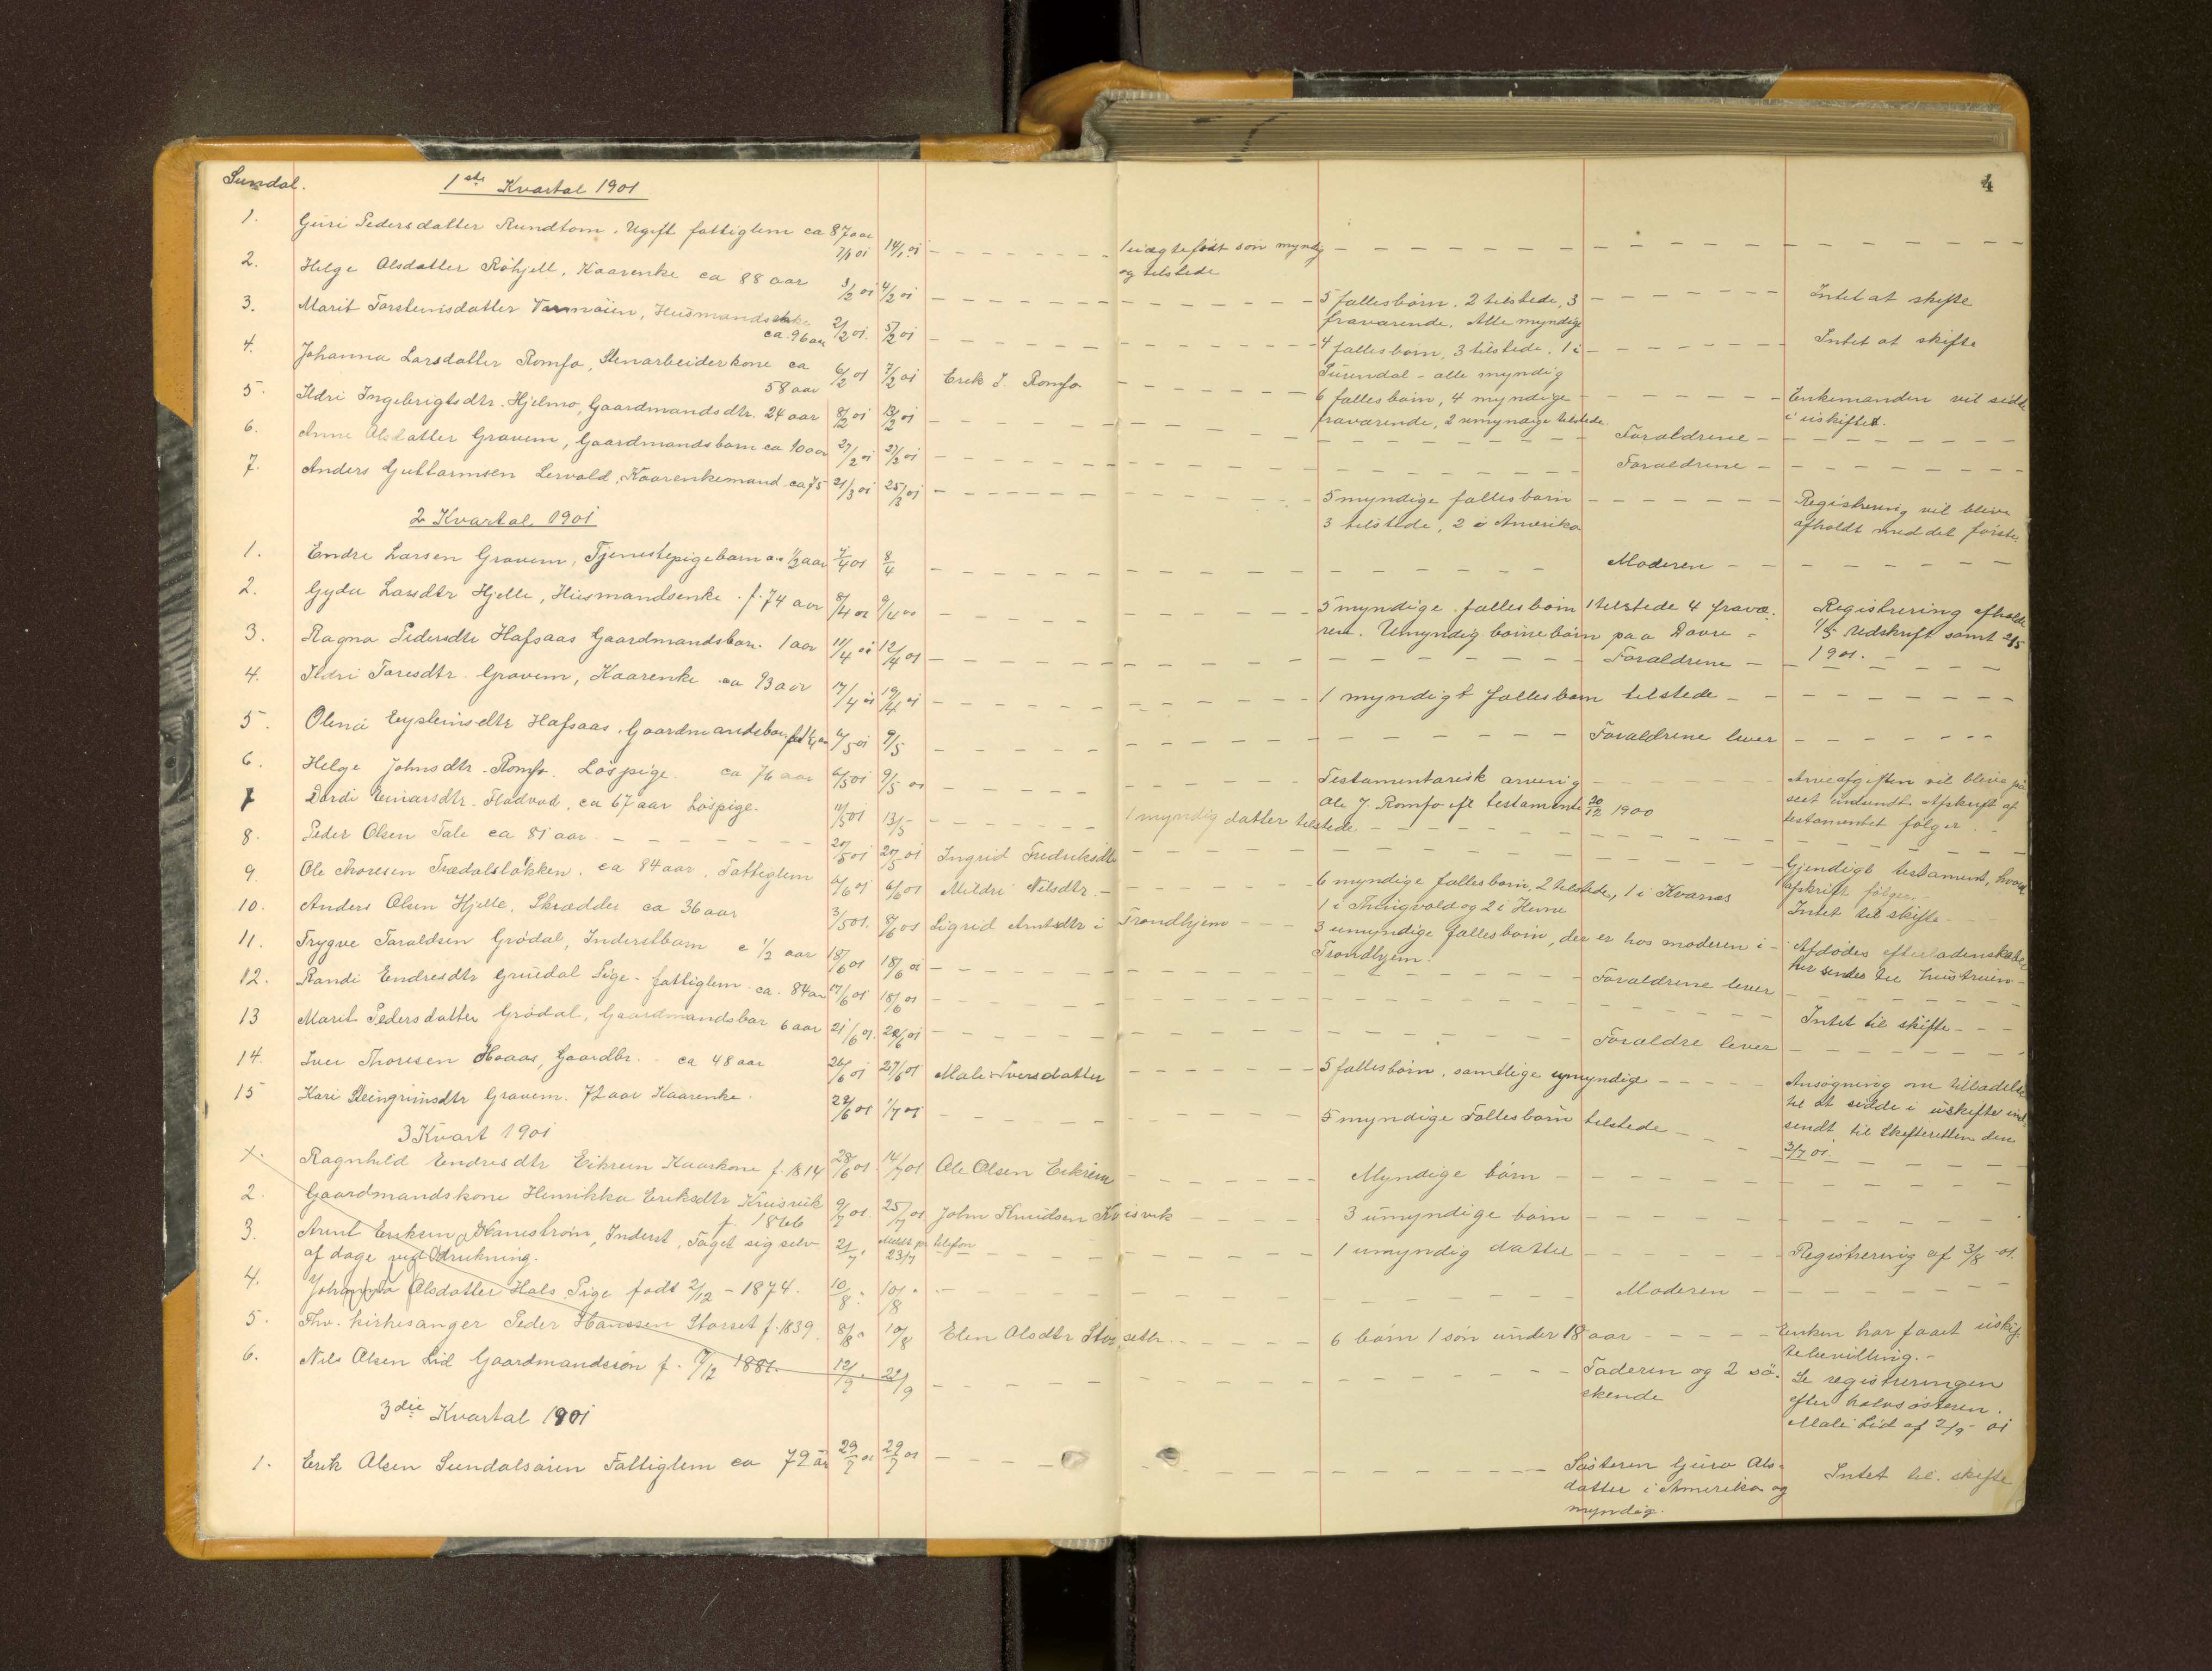 Sundal.
1ste Kvartal 1901
4
1. Guri Pedersdatter Rundtom. Ugift fattiglem ca 87 aar 7/1 01 14/1 01 1 uægte født son myndig
og tilstede
2. Helge Olsdatter Röhjell, Kaarenke ca 88 aar 3/2 01 4/2 01 5 fællesbörn. 2 tilstede, 3 Intet at skifte
fraværende. Alle myndige
3. Marit Torsteinsdatter Husmandsenke 2/2 01 5/2 01 4 fællesbörn, 3 tilstede, 1 i Intet at skifte
ca. 96 aar Surendal - alle myndig
4. Johanna Larsdatter Romfo, Stenarbeiderkone ca 6/2 01 7/2 01 Erik J. Romfo 6 fællesbörn, 4 myndige Enkemanden vil sidde
58 aar fraværende, 2 umyndige tilstede i uskiftet.
5. Ildri Ingebrigtsdtr. Hjelmo, Gaardmandsdtr. 24 aar 8/2 01 13/2 01 Foraldrene
6. Anne Olsdatter Gravem, Gaardmandsbarn ca 10 aar 27/2 01 27/2 01 Foraldrene
7. Anders Guttormsen Lervold, Kaarenkemand ca 75 21/3 01 25/3 01 5 myndige fællesbörn Registrering vil blive
3 tilstede, 2 i Amerika afholdt med det første
2 Kvartal 1901
1. Endre Larsen Gravem, Tjenestepigebarn 1/2 aar 7/4 01 8/4 Moderen
2. Gyda Larsdtr Hjelle, Husmandsenke f. 74 aar 8/4 01 9/4 01 5 myndige fællesbörn 1 tilstede 4 fravæ- Registrering afholdt
ren. Umyndig börnebörn paa Dovre 1/5 Udskrift samt 2/5
1901.
3. Ragna Pedersdtr Hafsaas Gaardmandsbarn 1 aar 11/4 01 12/4 01 Foraldrene
4. Ildri Toresdtr. Gravem, Kaarenke ca 93 aar 17/4 01 19/4 01 1 myndigt fællesbarn tilstede
5. Olena Eysteinsdtr Hafsaas, Gaardmandsbarn 6/5 01 9/5 Foraldrene lever
6. Helge Johnsdtr. Romfo. Löspige. ca 76 aar 6/5 01 9/5 01 Testamentarisk arving Arveafgiften vil blive
Ole J. Romfo efl testamente 20/12 1900 indsendt. Afskrift af
testamentet følger
7 Dordi Einarsdtr. Fladvad, ca 67 aar Löspige. 11/5 01 13/5 1 myndig datter tilstede
8. Peder Olsen Tale ca 81 aar 20/5 01 20/5 01 Ingrid Fredriksdtr Gjendigt testament, hvoraf
afskrift følger
9. Ole Thoresen Trædalsløkken. ca 84 aar. Fattiglem 6/6 01 6/6 01 Mildri Nilsdtr. 6 myndige fællesbörn, 2 tilstede, 1 i Kvarnes Intet til skifte
1 i Thingvold og 2 i Hevne
10. Anders Olsen Hjelle, Skrædder ca 36 aar 3/5 01 8/6 01 Sigrid Arntsdtr i Trondhjem 3 umyndige fællesbörn, der er hos moderen i Afdødes efterladenskaber
Trondhjem. her sendes til hustruen
11. Trygve Taraldsen Grødal, Inderstbarn c 1/2 aar 18/6 01 18/6 01 Foraldrene lever
12. Randi Endresdtr Gruedal Pige - fattiglem ca. 84 aar 17/6 01 18/6 01 Intet til skifte
13 Marit Pedersdatter Grødal, Gaardmandsbar 6 aar 21/6 01 22/6 01 Foraldre lever
14. Iver Thoresen Hoaas, Gaardbr. ca 48 aar 26/6 01 27/6 01 Male Iversdatter 5 fællesbörn. samtlige umyndige Ansøgning om tilladelse
til at sidde i uskiftet ind-
sendt til Skifteretten den
3/7 01.
15 Kari Steingrimsdtr Gravem. 72 aar Kaarenke. 28/6 01 1/7 01 5 myndige Fællesbörn tilstede
3 Kvart 1901
1. Ragnhild Endresdtr Eikrem Kaarkone f. 1814 28/6 01 14/7 01 Ole Olsen Eikrem Myndige börn
2. Gaardmandskone Henrikka Eriksdtr Kvisvik 9/7 01 25/7 01 John Knudsen Kvisvik 3 umyndige börn
f. 1866
3. Arnt Eriksen Hanestrøm, Inderst, Taget sig selv 21/7 Meldt pr telefon 23/7 1 umyndig datter Registrering af 3/8 01.
af dage ved drukning.
4. Johanna Olsdatter Hals Pige født 2/12 - 1874. 10/8 10/8 Moderen
5. Fhv. kirkesanger Peder Hanssen Storset f. 1839. 8/8 10/8 Elen Olsdtr Storseth 6 börn 1 sön under 18 aar Enken har faaet uskif-
tebevilling.
6. Nils Olsen Lid Gaardmandssön f. 9/12 1881. 12/9 22/9 Faderen og 2 sö- Se registreringen
skende efter halvsösteren
Mali Lid af 2/9 - 01
3die Kvartal 1901
1. Erik Olsen Sundalsören Fattiglem ca 72 år 29/7 01 29/7 01 Søsteren Guro Ols- Intet til skifte
datter i Amerika og
myndig.